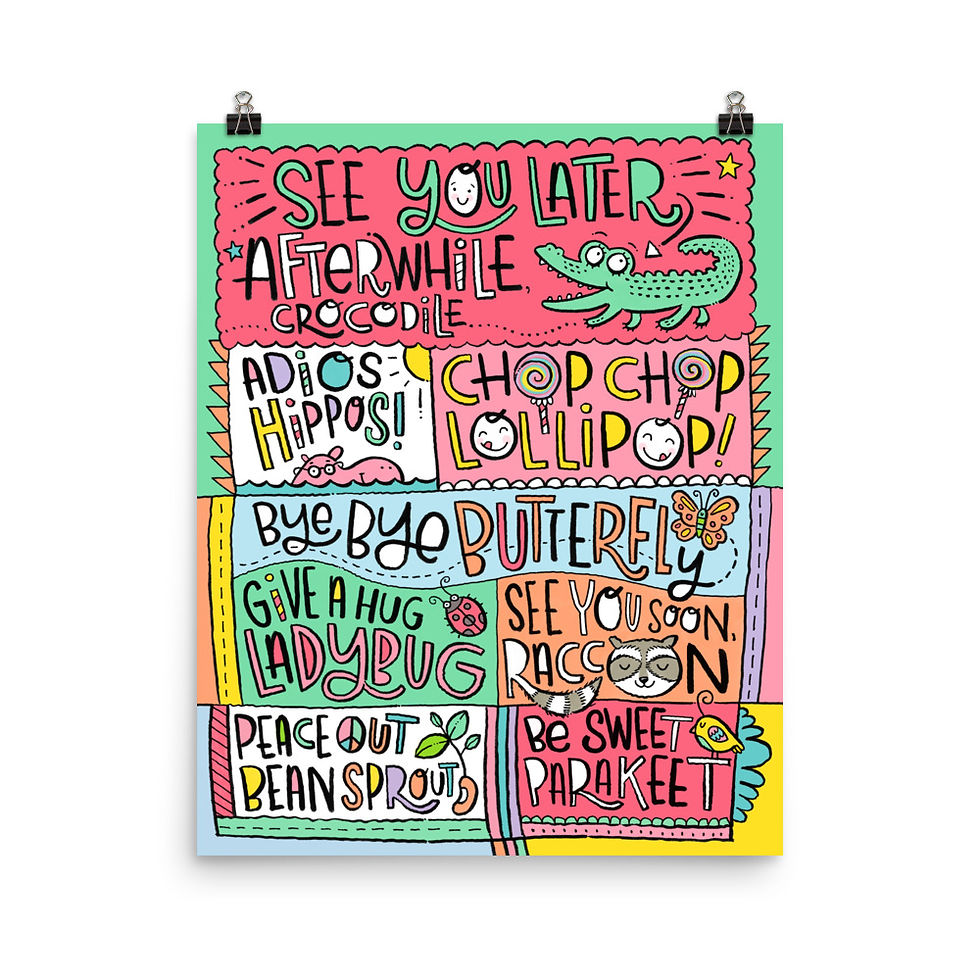 SEE YOU LATER,
AFTERWHILE,
CROCODILE
ADIOS
HIPPOS!
CHOP CHOP
LOLLIPOP!
Bye Bye BUTTERFLy
GIVE A HUG
LADYBUG
SEE YOU SOON,
RACCOON
PEACE OUT
BEAN SPROUT
Be SWEET
PARAKEET